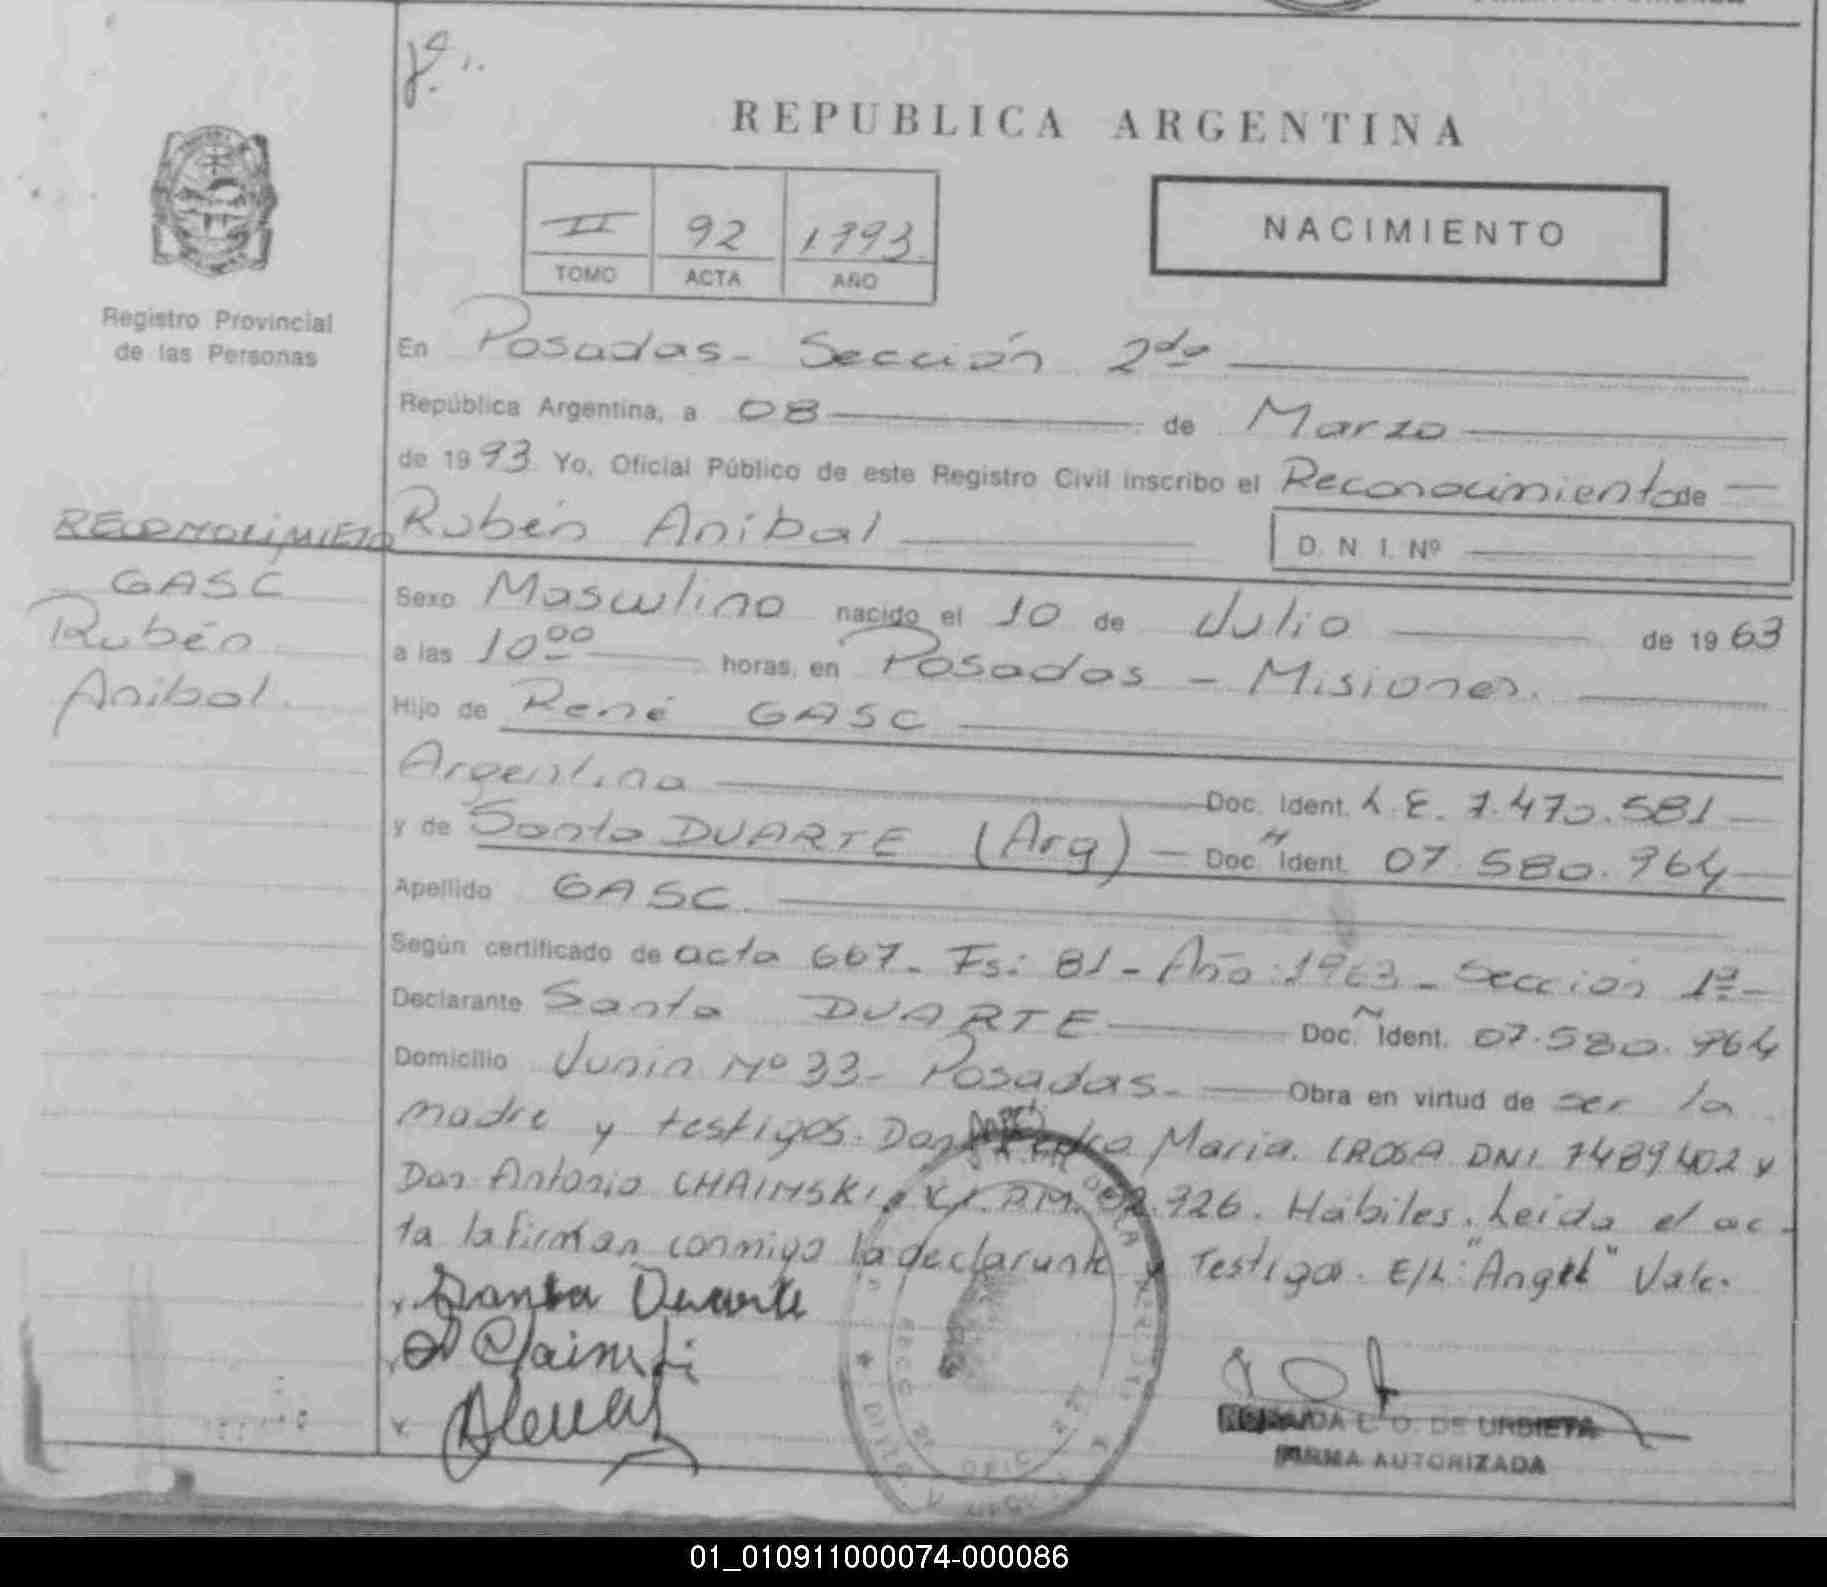 REPUBLICA ARGENTINA
II 92 1993.
TOMO ACTA AÑO
NACIMIENTO
Registro Provincial
de las Personas
En Posadas - Sección 2da
República Argentina, a 08 de Marzo
de 1993 Yo, Oficial Público de este Registro Civil inscribo el Reconocimiento de
Rubén Anibal D. N. I. Nº
RECONOCIMIETO
GASC
Rubén
Anibal.
Sexo Masculino nacido el 10 de Julio de 1963
a las 10 00 horas, en Posadas - Misiones.
Hijo de René GASC
Argentina Doc. Ident. L.E. 7.470.581
y de Santa DUARTE (Arg) - Doc. Ident. 07.580.964
Apellido GASC
Según certificado de acta 667 - Fs: 81 - Año: 1963 - Sección 1ª -
Declarante Santa DUARTE Doc. Ident. 07.580.964
Domicilio Junin Nº 33 - Posadas. Obra en virtud de ser la
madre y testigos. Don Pedro Maria DNI 7489402 y
Don Antonio CHAINSKI 926. Hábiles. Leida el ac-
ta la firman conmigo la declarante y Testigos. E/L: "Angel" Vale.
Santa Duarte
DE URBIETA
FIRMA AUTORIZADA
01_010911000074-000086